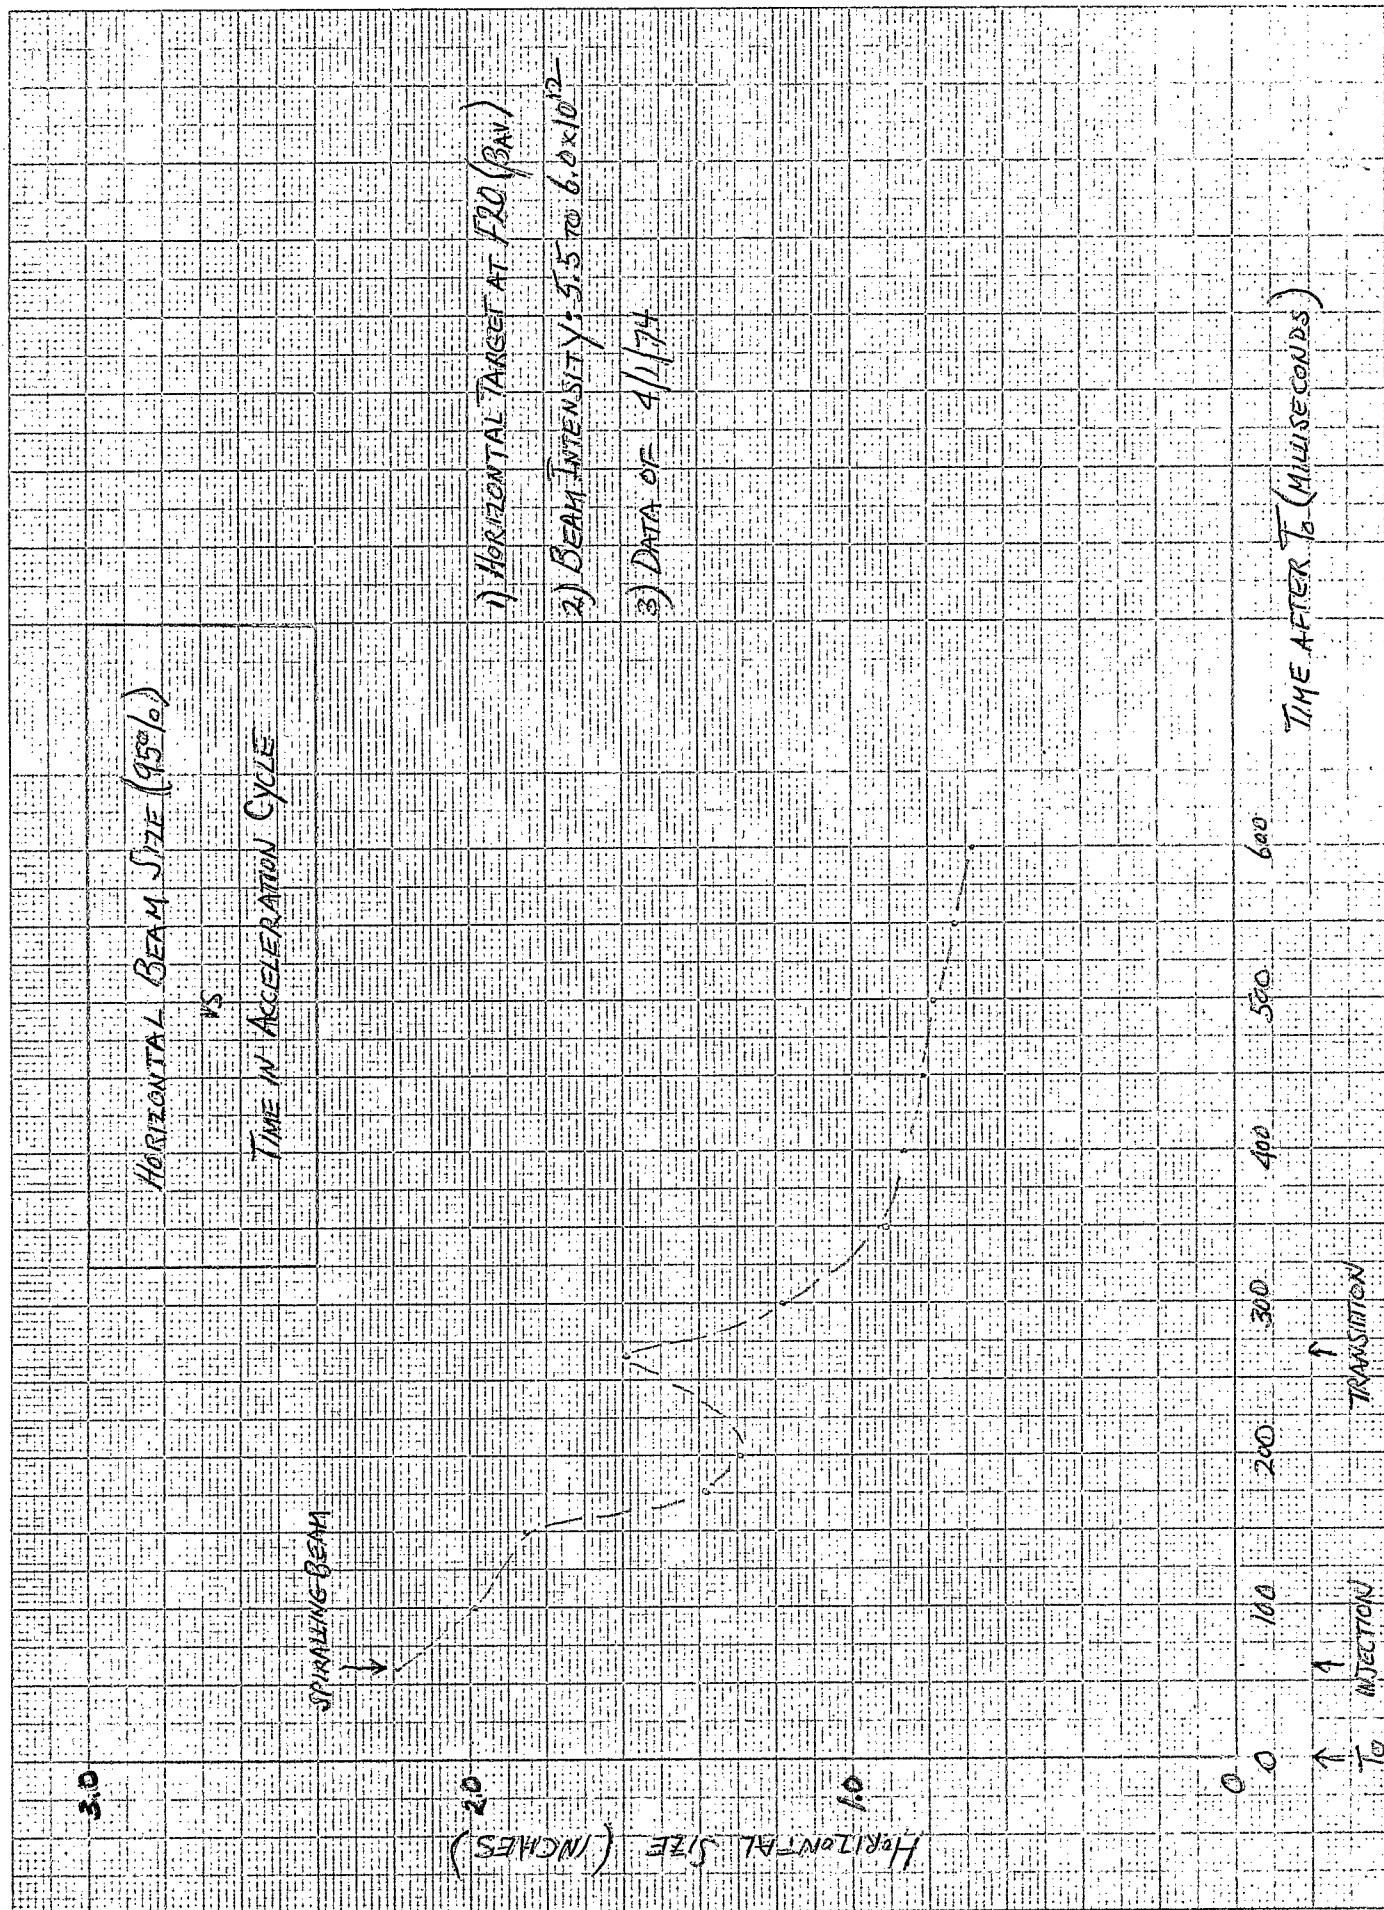 HORIZONTAL BEAM SIZE (95%)
VS
TIME IN ACCELERATION CYCLE
1) HORIZONTAL TARGET AT F20 (βAV.)
2) BEAM INTENSITY: 5.5 TO 6.0x10¹²
3) DATA OF 4/1/74
SPIRALLING BEAM
↓
HORIZONTAL SIZE (INCHES)
3.0
2.0
1.0
0
0 100 200 300 400 500 600
TIME AFTER T₀ (MILLISECONDS)
↑ ↑ ↑
T₀ INJECTION TRANSITION